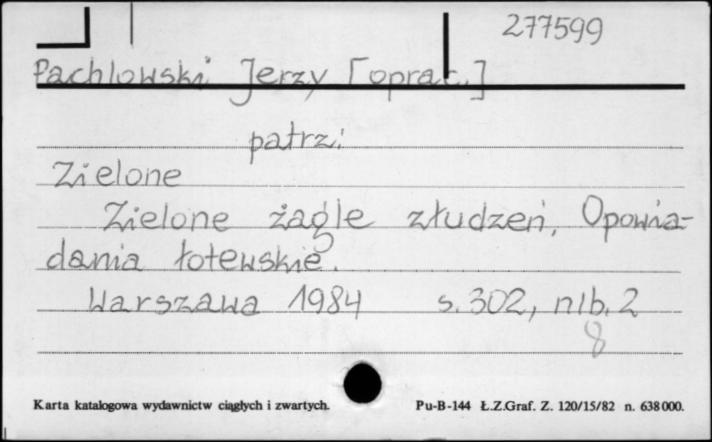 277599
Pachlowski Jerzy [oprac.]
patrz:
Zielone
Zielone żagle złudzeń, Opowia-
dania łotewskie.
Warszawa 1984 s. 302, nlb. 2
8
Karta katalogowa wydawnictw ciągłych i zwartych. Pu-B-144 Ł.Z.Graf. Z. 120/15/82 n. 638000.